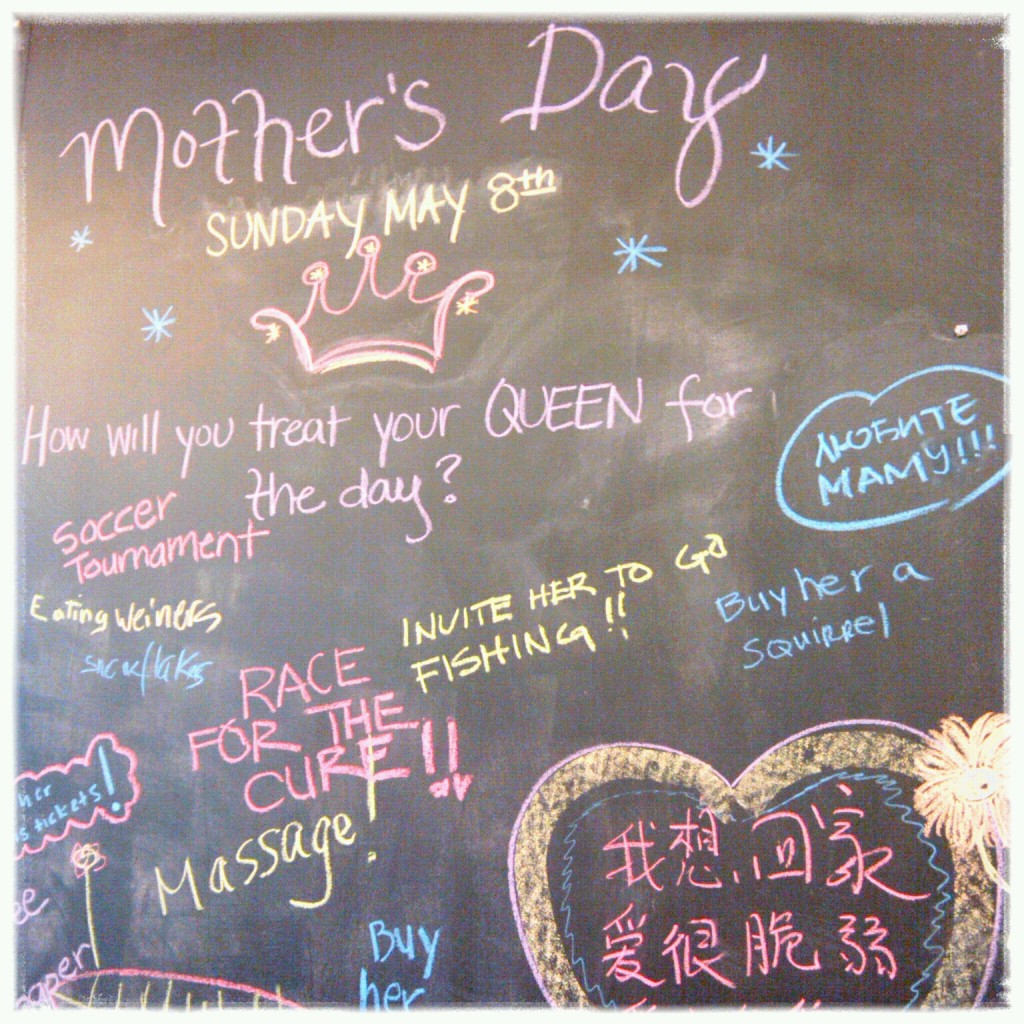 Mother's Day
SUNDAY MAY 8th
How will you treat your QUEEN for
the day?
ЛЮБИТЕ
МАМУ!!!
Soccer
Tournament
Eating Weiners
snowflakes
INVITE HER TO GO
FISHING!!
Buy her a
SQUIRREl
RACE
FOR THE
CURE!!
her
tickets!
Massage!
Buy
her
我想回家
爱很脆弱